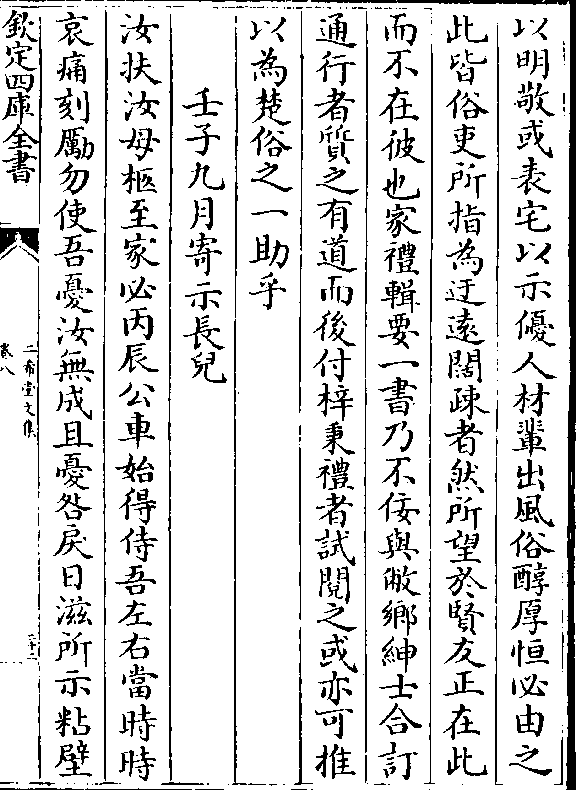 以明敬或表宅以示優人材輩出風俗醇厚恒必由之
此皆俗吏所指為迂遠闊疎者然所望於賢友正在此
而不在彼也家禮輯要一書乃不佞與敝鄉紳士合訂
通行者質之有道而後付梓秉禮者試閱之或亦可推
以為楚俗之一助乎
壬子九月寄示長兒
汝扶汝母柩至家必丙辰公車始得侍吾左右當時時
哀痛刻勵勿使吾憂汝無成且憂咎戾日滋所示粘壁
欽定四庫全書
二希堂文集
卷八